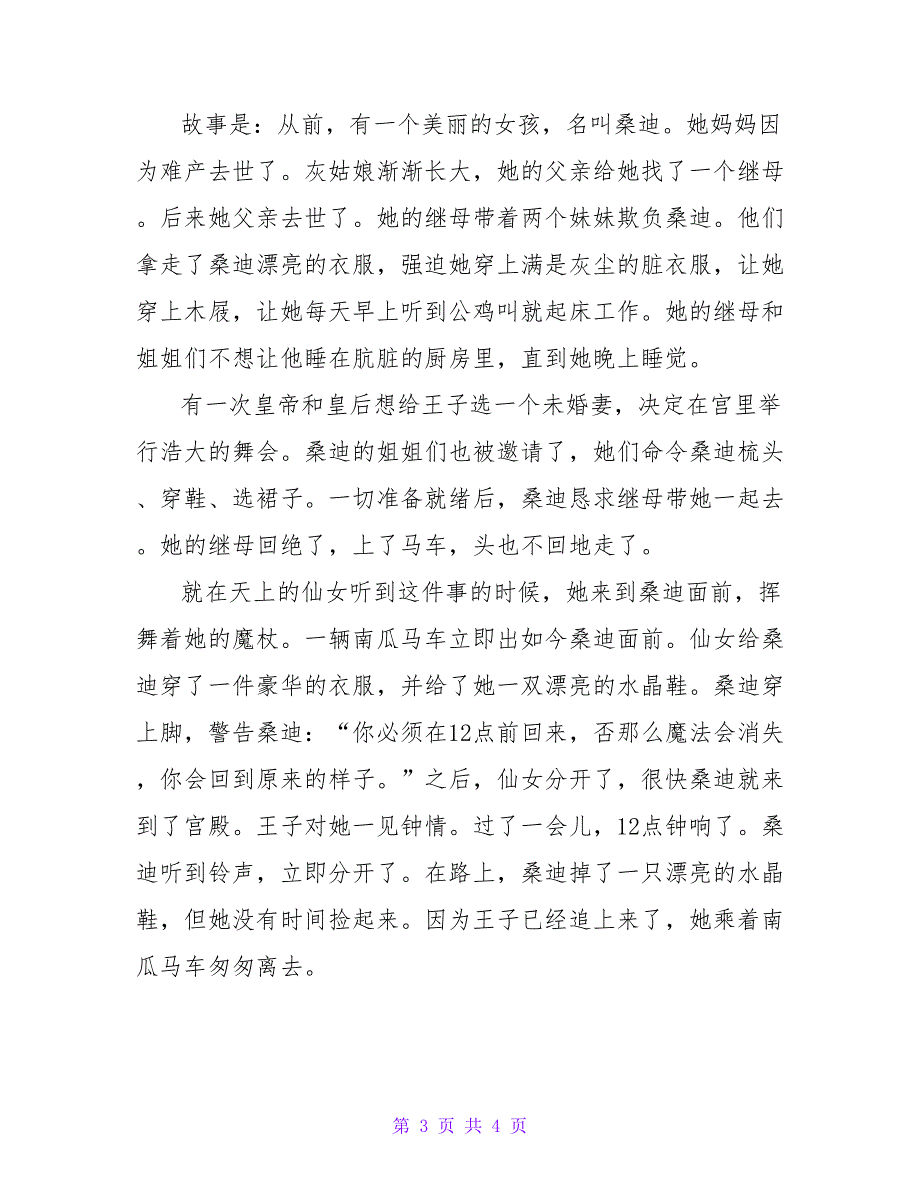 故事是：从前，有一个美丽的女孩，名叫桑迪。她妈妈因
为难产去世了。灰姑娘渐渐长大，她的父亲给她找了一个继母
。后来她父亲去世了。她的继母带着两个妹妹欺负桑迪。他们
拿走了桑迪漂亮的衣服，强迫她穿上满是灰尘的脏衣服，让她
穿上木屐，让她每天早上听到公鸡叫就起床工作。她的继母和
姐姐们不想让他睡在肮脏的厨房里，直到她晚上睡觉。
有一次皇帝和皇后想给王子选一个未婚妻，决定在宫里举
行浩大的舞会。桑迪的姐姐们也被邀请了，她们命令桑迪梳头
、穿鞋、选裙子。一切准备就绪后，桑迪恳求继母带她一起去
。她的继母回绝了，上了马车，头也不回地走了。
就在天上的仙女听到这件事的时候，她来到桑迪面前，挥
舞着她的魔杖。一辆南瓜马车立即出如今桑迪面前。仙女给桑
迪穿了一件豪华的衣服，并给了她一双漂亮的水晶鞋。桑迪穿
上脚，警告桑迪：“你必须在12点前回来，否那么魔法会消失
，你会回到原来的样子。”之后，仙女分开了，很快桑迪就来
到了宫殿。王子对她一见钟情。过了一会儿，12点钟响了。桑
迪听到铃声，立即分开了。在路上，桑迪掉了一只漂亮的水晶
鞋，但她没有时间捡起来。因为王子已经追上来了，她乘着南
瓜马车匆匆离去。
第 3 页 共 4 页